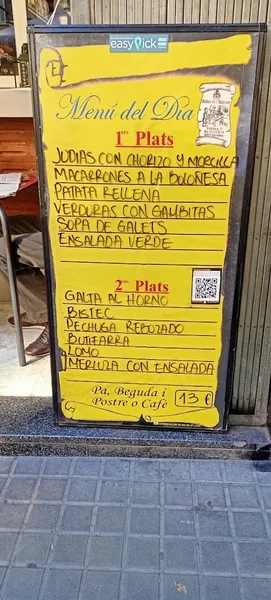 easyPick
Menú del Dia
1er Plats
JUDIAS CON CHORIZO Y MORCILLA
MACARRONES A LA BOLOÑESA
PATATA RELLENA
VERDURAS CON GAMBITAS
SOPA DE GALETS
ENSALADA VERDE
2on Plats
GALTA AL HORNO
BISTEC
PECHUGA REBOZADO
BUTIFARRA
LOMO
MERLUZA CON ENSALADA
Pa, Beguda i
Postre o Cafè
13 €